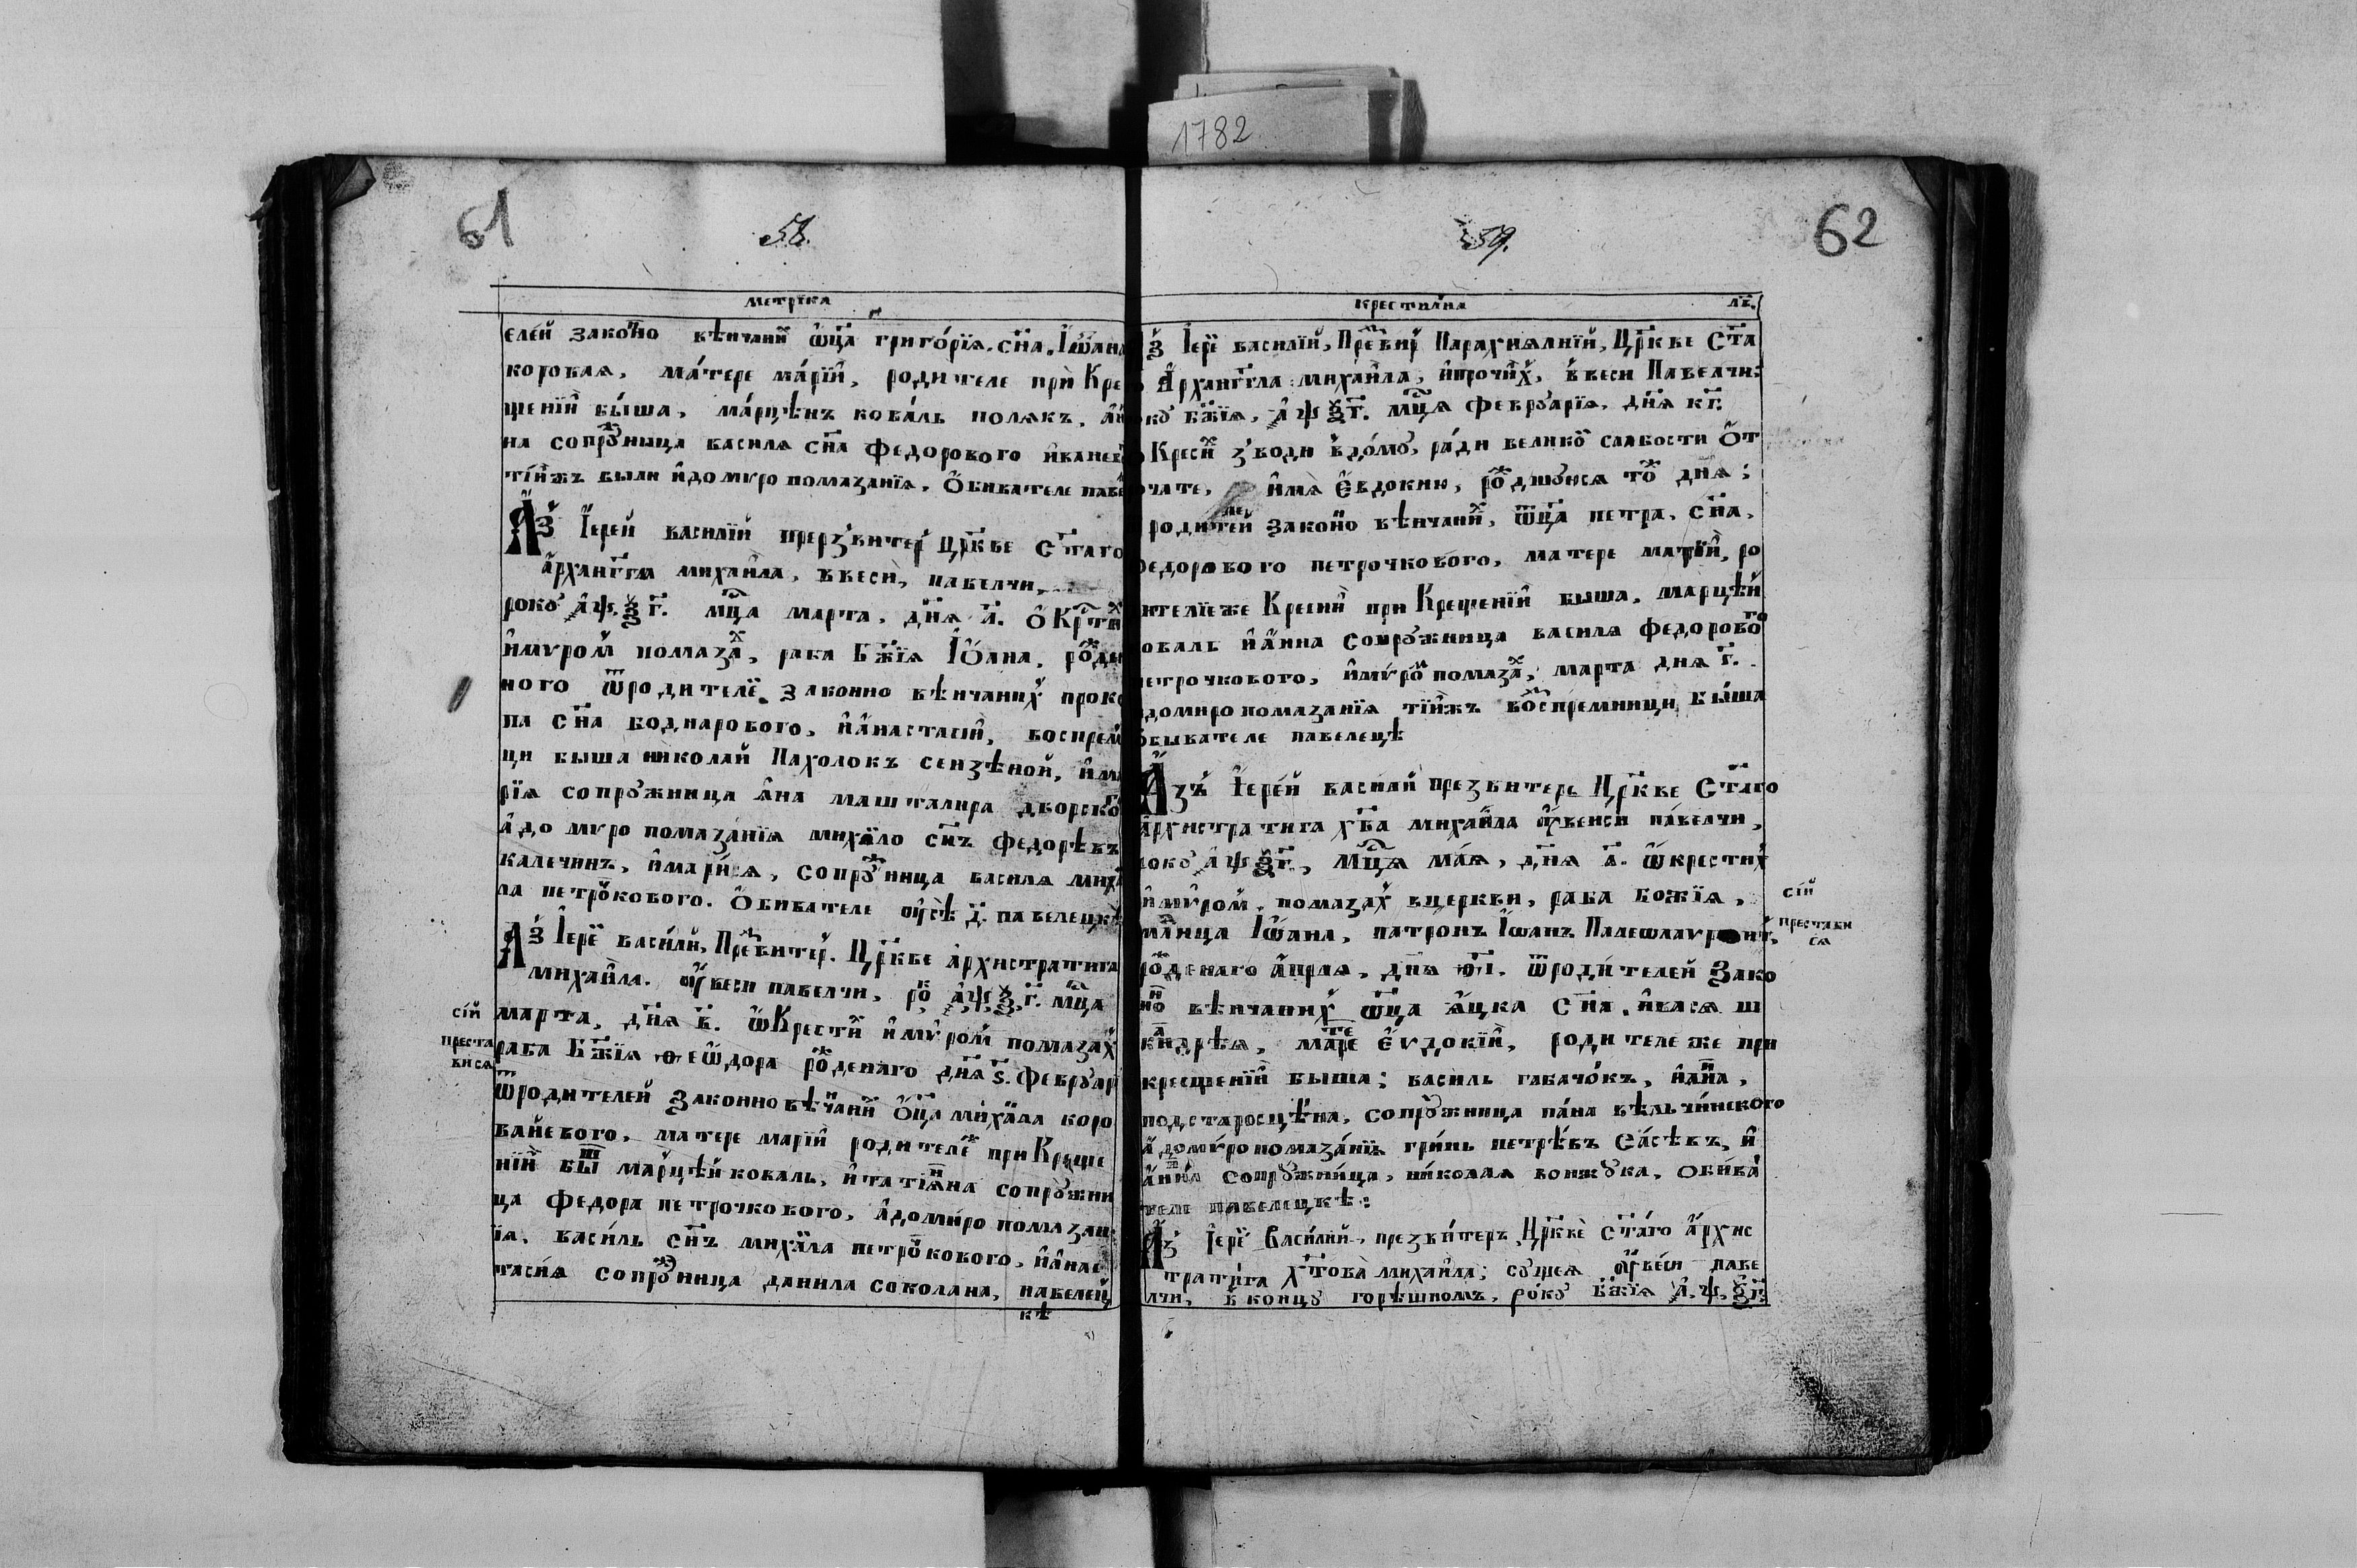 1782
61
58.
метрїка
елей законо вѣнчаний ѿца григорїя. сна. Іѡана
коговая, матере марїй, родителе при Кре
щенїи быша, марцѣнъ коваль полякъ, ан
на сопрꙋжница василя сна федорового ивашев
тїижъ были идо мѵро помазанїя. Обивателе паве
Аз Іерей василїй презвитер цркве Стаго
архангела михаила, ввеси, павелчи,
рокꙋ ҂аѱѯг. мца марта, дня а. ѡКрти
имѵром помазах, раба Бжїя Іоана, рожде
ного ѿродителе законно вѣнчаних проко
па сна боднарового, ианастасїи, воспрем
ци быша николай Пахолокъ сензѣной, има
рїя сопрꙋжница ана машталира дворско
адо мѵро помазанїя михайло снъ федорѣвъ
калечинъ, имарися, сопрꙋжница василя миха
ла петрокового. Обивателе оусѣ д. павелецкѣ
Аз Іерей василй, Превитер. Цркве архистратига
михаила. оувеси павелчи, ро ҂аѱѯг. мца
сїй марта, дня в. ѡКрести имѵром помазах
преста раба Бжїя ѳеѡдора рожденаго дня ѕ. феврꙋар
вися
ѿродителей законно вѣнчани Оца михайла коро
ваневого, матере марїй родителе при Креще
нїи быш марцѣй коваль, итатїяна сопрꙋжни
ца федора петрочкового, адомиро помазан
їя. василь снъ михайла петрокового, ианас
тасия сопрꙋжница данила соколана, павелец
кѣ
62
59.
крестилна лв.
Аз Іерей василїй, Превитр Парахиялнїй, Цркве Ста
Архангела михаила, ипрочих, ввеси Павелчи:
окꙋ бжїя, ҂аѱѯг. мця феврꙋарїя, дня кг.
Креси зводи вдомꙋ, ради великой слабости От
очате, имя Євдокию, рождшꙋюся то дня;
родителей законо вѣнчани, ѿца петра, сна,
федорового петрочкового, матере матрїи, ро
ителїеже Кресни при Крещенїи быша, марцѣй
оваль и анна сопрꙋжница василя федорового
етрочкового, имѵром помаза, марта дня г.
адомиро помазанїя тїижъ воспремници быша
обывателе павелецѣ
Азъ Іерей василий презвитеръ Цркве Стаго
архистратига хва михаила оувеиси павелчи,
рокꙋ ҂аѱѯг, Мця мая, дня а. ѡкрестих
имѵром. помазах вцеркви, раба божїя, сїй
млнца Іѡана, патронъ Іѡанъ преставися
рожденаго априля, дня ѳ҃і. ѿродителей зако
но вѣнчаних ѿца яцка Сна, ивася ш
кандрѣя, матере Єѵдокїи, родителе же при
крещенїи быша; василь габачокъ, ианна,
подстаросцѣна, сопрꙋжница пана вѣльчинского
адомѵропомазанїя гринь петрѣвъ Сасѣвъ, и
анна сопрꙋжница, николая вонжꙋка, обива
теле павелецкѣ:
Аз Іерей Василий, презвитеръ, Црквѐ стаго Архис
тратига хтова михаила; сꙋщея оувеси паве
лчи, вконцꙋ горѣшномъ, рокꙋ бжїя ҂а,ѱ,ѯг.